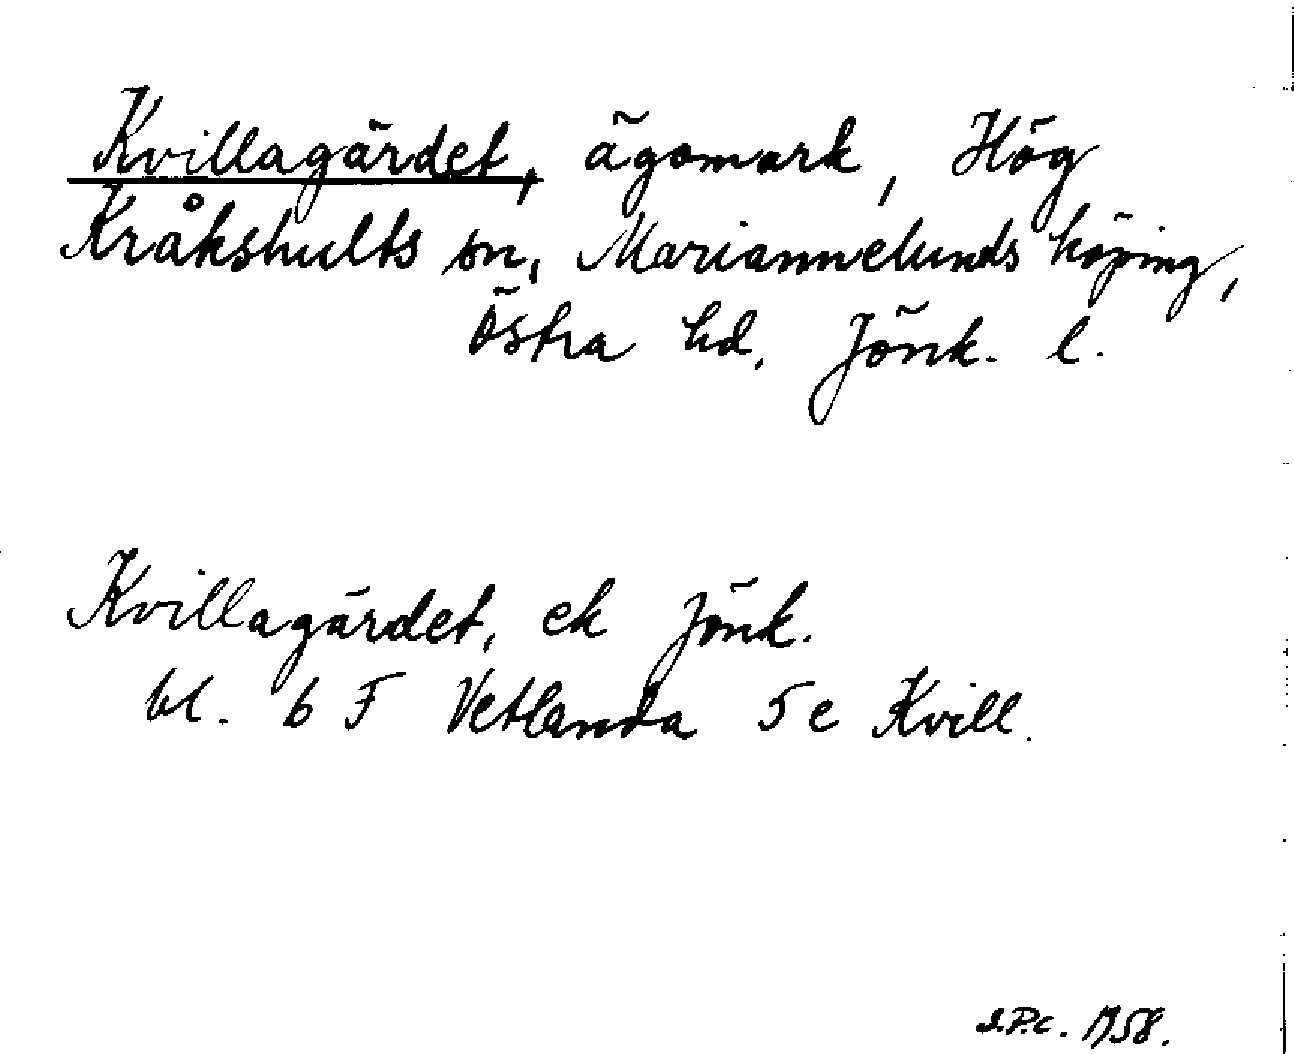 Kvillagärdet, ägomark, Hög
Kråkshults sn, Mariannelunds köping,
Östra hd, Jönk. l.
Kvillagärdet, ek Jönk.
bl. 6 F Vetlanda 5e Kvill.
I.P.C. 1958.